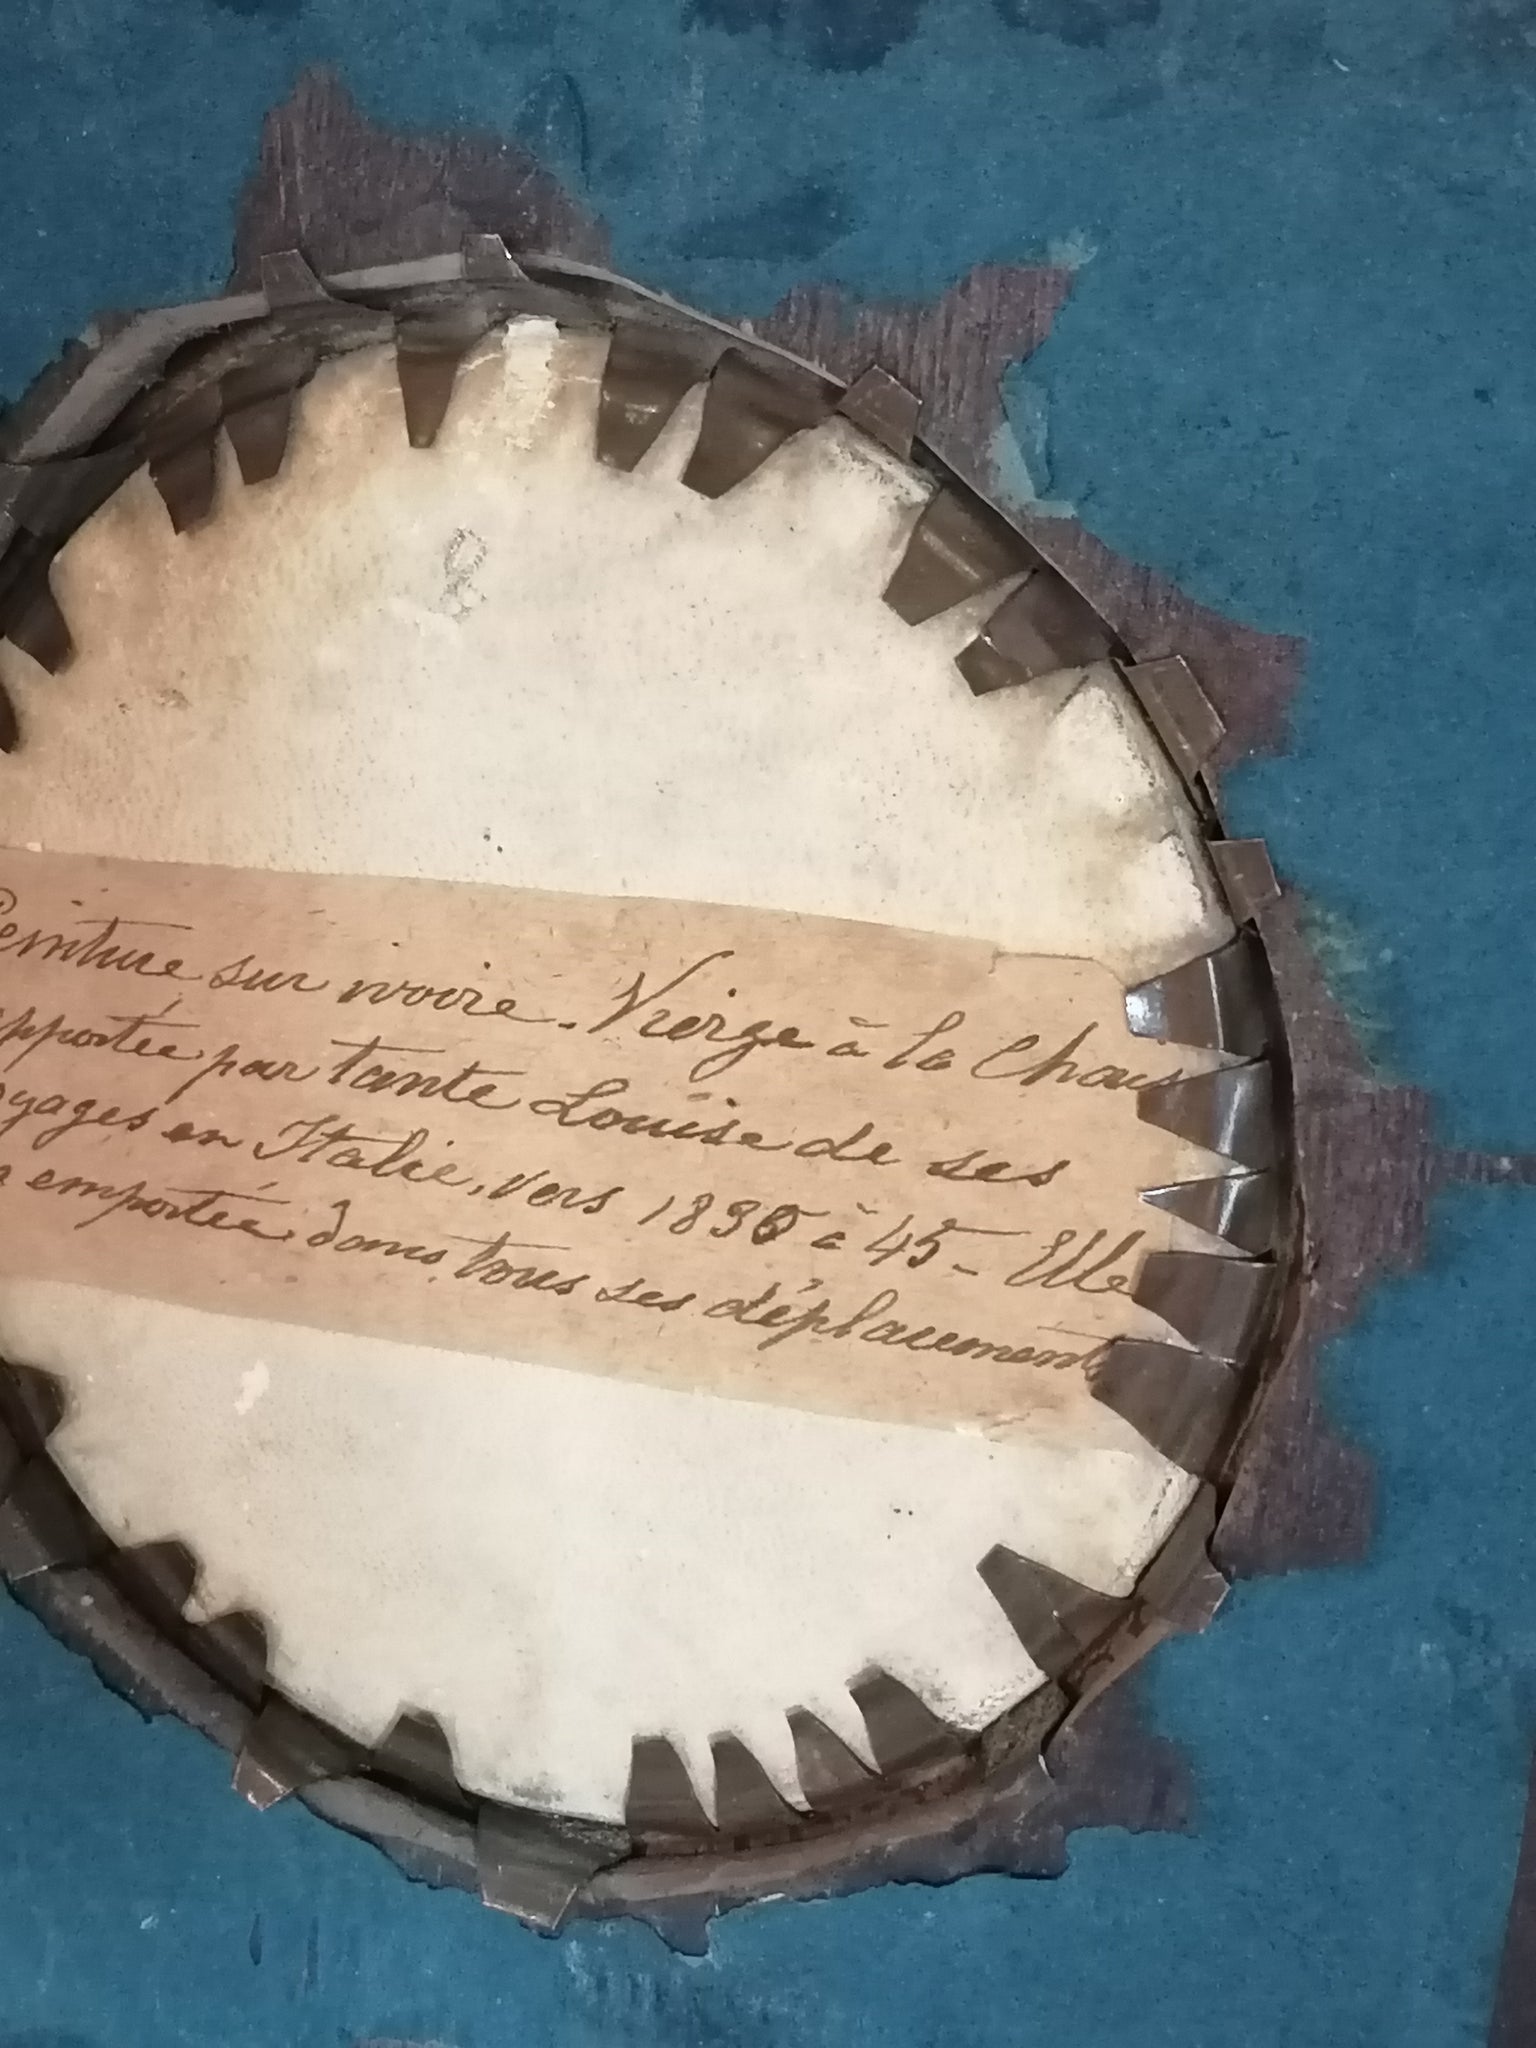 Peinture sur ivoire. Vierge à la Chais
apportée par tante Louise de ses
oyages en Italie, vers 1836 à 45 - Elle
a emportée dans tous ses déplacements